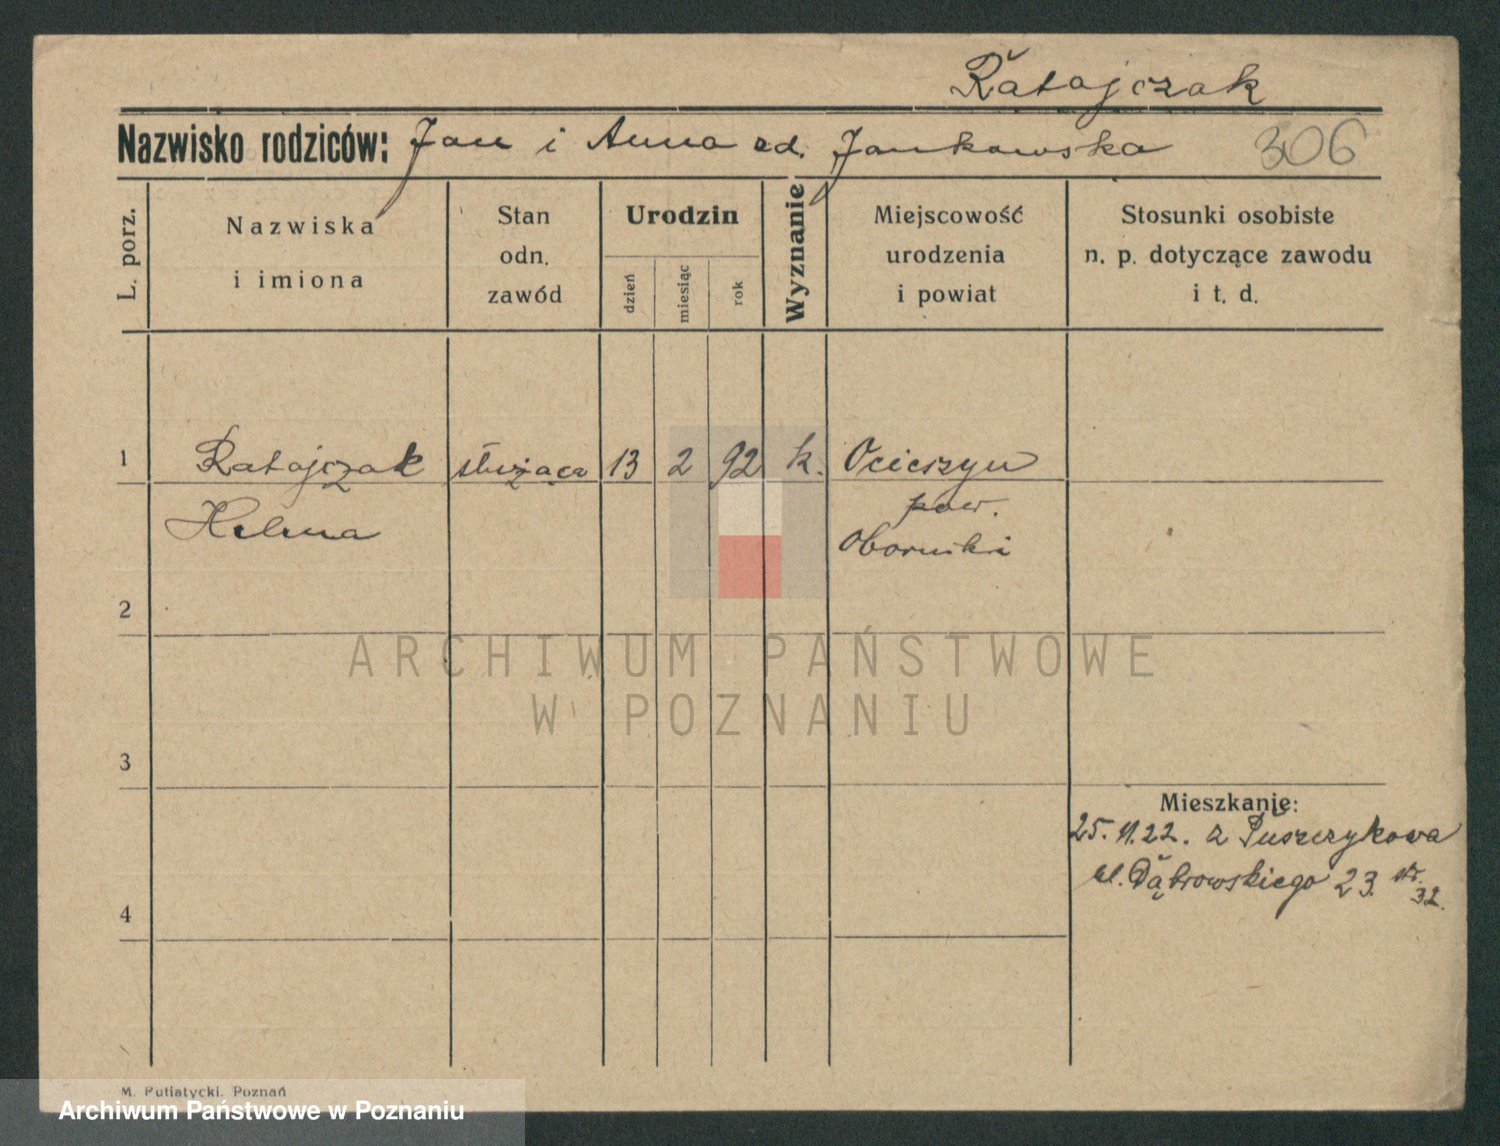 Ratajczak
Nazwisko rodziców: Jan i Anna zd. Jankowska 306
L. porz.
Nazwiska
i imiona
Stan
odn.
zawód
Urodzin
dzień
miesiąc
rok
Wyznanie
Miejscowość
urodzenia
i powiat
Stosunki osobiste
n. p. dotyczące zawodu
i t. d.
1 Ratajczak służąca 13 2 92 k. Ocieszyn
Helena pow.
Obornicki
2
3
4
Mieszkanie:
25. 11. 22. z Puszczykowa
ul. Dąbrowskiego 23. 32.
ARCHIWUM PAŃSTWOWE
W POZNANIU
M. Putiatycki. Poznań
Archiwum Państwowe w Poznaniu